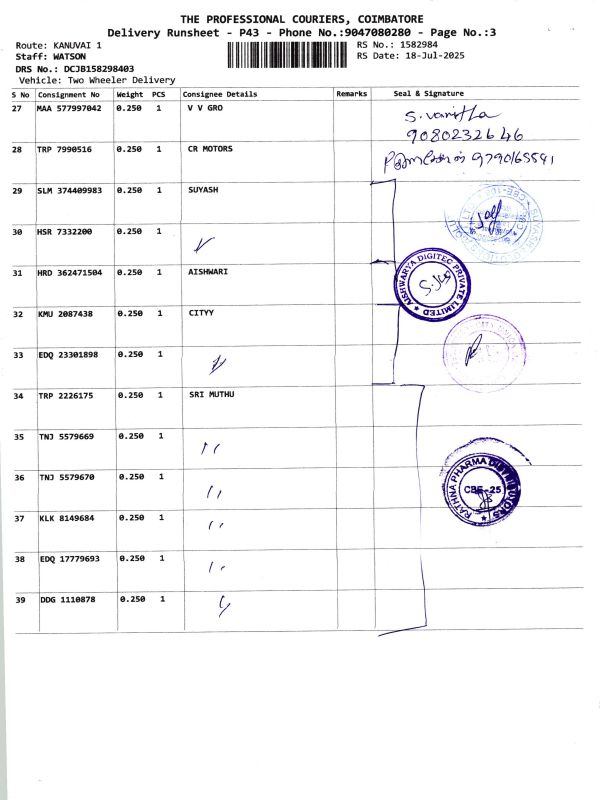 THE PROFESSIONAL COURIERS, COIMBATORE
Delivery Runsheet - P43 - Phone No.:9047080280 - Page No.:3
Route: KANUVAI 1 RS No.: 1582984
Staff: WATSON RS Date: 18-Jul-2025
DRS No.: DCJB158298403
Vehicle: Two Wheeler Delivery
S No Consignment No Weight PCS Consignee Details Remarks Seal & Signature
27 MAA 577997042 0.250 1 V V GRO S. Vanitha
9080232646
28 TRP 7990516 0.250 1 CR MOTORS 9790165591
29 SLM 374409983 0.250 1 SUYASH
30 HSR 7332200 0.250 1
31 HRD 362471504 0.250 1 AISHWARI
AISHWARYA DIGITEC PRIVATE LIMITED
32 KMU 2087438 0.250 1 CITYY
33 EDQ 23301898 0.250 1
34 TRP 2226175 0.250 1 SRI MUTHU
35 TNJ 5579669 0.250 1
36 TNJ 5579670 0.250 1
RATHNA PHARMA DISTRIBUTORS
CBE-25
37 KLK 8149684 0.250 1
38 EDQ 17779693 0.250 1
39 DDG 1110878 0.250 1